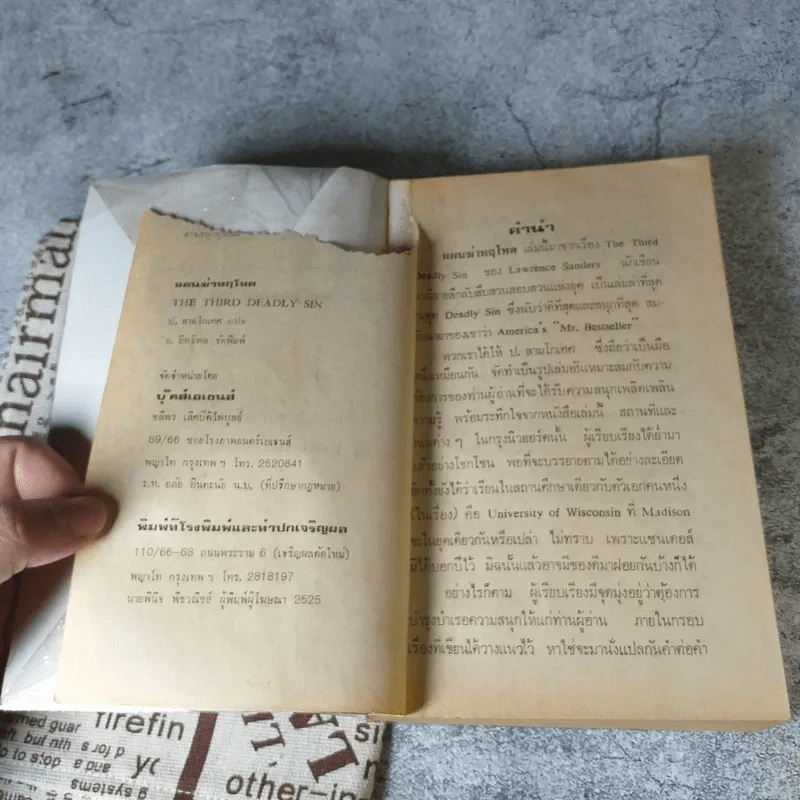 แผนฆ่าทฤโหด
THE THIRD DEADLY SIN
ป. สามโกเศศ แปล
อ. อิทธิพล จัดพิมพ์
จัดจำหน่ายโดย
บุ๊คส์เอเยนส์
ชลีพร เลิศปิติไพบูลย์
69/66 ซอยโรงภาพยนตร์เอเธนส์
พญาไท กรุงเทพ ฯ โทร. 2520841
ร.ท. อภัย อินคะนัย น.บ. (ที่ปรึกษากฎหมาย)
พิมพ์ที่โรงพิมพ์และทำปกเจริญผล
110/66-68 ถนนพระราม 6 (เจริญผลตัดใหม่)
พญาไท กรุงเทพ ฯ โทร. 2818197
นายพินิจ พืชวณิชย์ ผู้พิมพ์ผู้โฆษณา 2525
คำนำ
แผนฆ่าทฤโหด เล่มนี้มาจากเรื่อง The Third
Deadly Sin ของ Lawrence Sanders นักเขียน
สืบสวนสอบสวนแห่งยุค เป็นเล่มล่าที่สุด
ชุด Deadly Sin ซึ่งนับว่าดีที่สุดและสนุกที่สุด สม-
ของเขาว่า America's "Mr. Bestseller"
พวกเราได้ให้ ป. สามโกเศศ ซึ่งถือว่าเป็นมือ
หนึ่งเหมือนกัน จัดทำเป็นรูปเล่มอันเหมาะสมกับความ
ของท่านผู้อ่านที่จะได้รับความสนุกเพลิดเพลิน
ความรู้ พร้อมระทึกใจจากหนังสือเล่มนี้ สถานที่และ
ต่าง ๆ ในกรุงนิวยอร์คนั้น ผู้เรียบเรียงได้ย่ำมา
แล้วอย่างโชกโชน พอที่จะบรรยายตามได้อย่างละเอียด
อีกทั้งยังได้ร่ำเรียนในสถานศึกษาเดียวกับตัวเอกคนหนึ่ง
(ในเรื่อง) คือ University of Wisconsin ที่ Madison
จะในยุคเดียวกันหรือเปล่า ไม่ทราบ เพราะแซนเดอส์
มิได้บอกปีไว้ มิฉนั้นแล้วอาจมีซองดีมาฝอยกันบ้างก็ได้
อย่างไรก็ตาม ผู้เรียบเรียงมีจุดมุ่งอยู่ว่าต้องการ
บำรุงบำเรอความสนุกให้แก่ท่านผู้อ่าน ภายในกรอบ
เรื่องที่เขียนได้วางแนวไว้ หาใช่จะมานั่งแปลกันคำต่อคำ
hairman
firefin
other-in